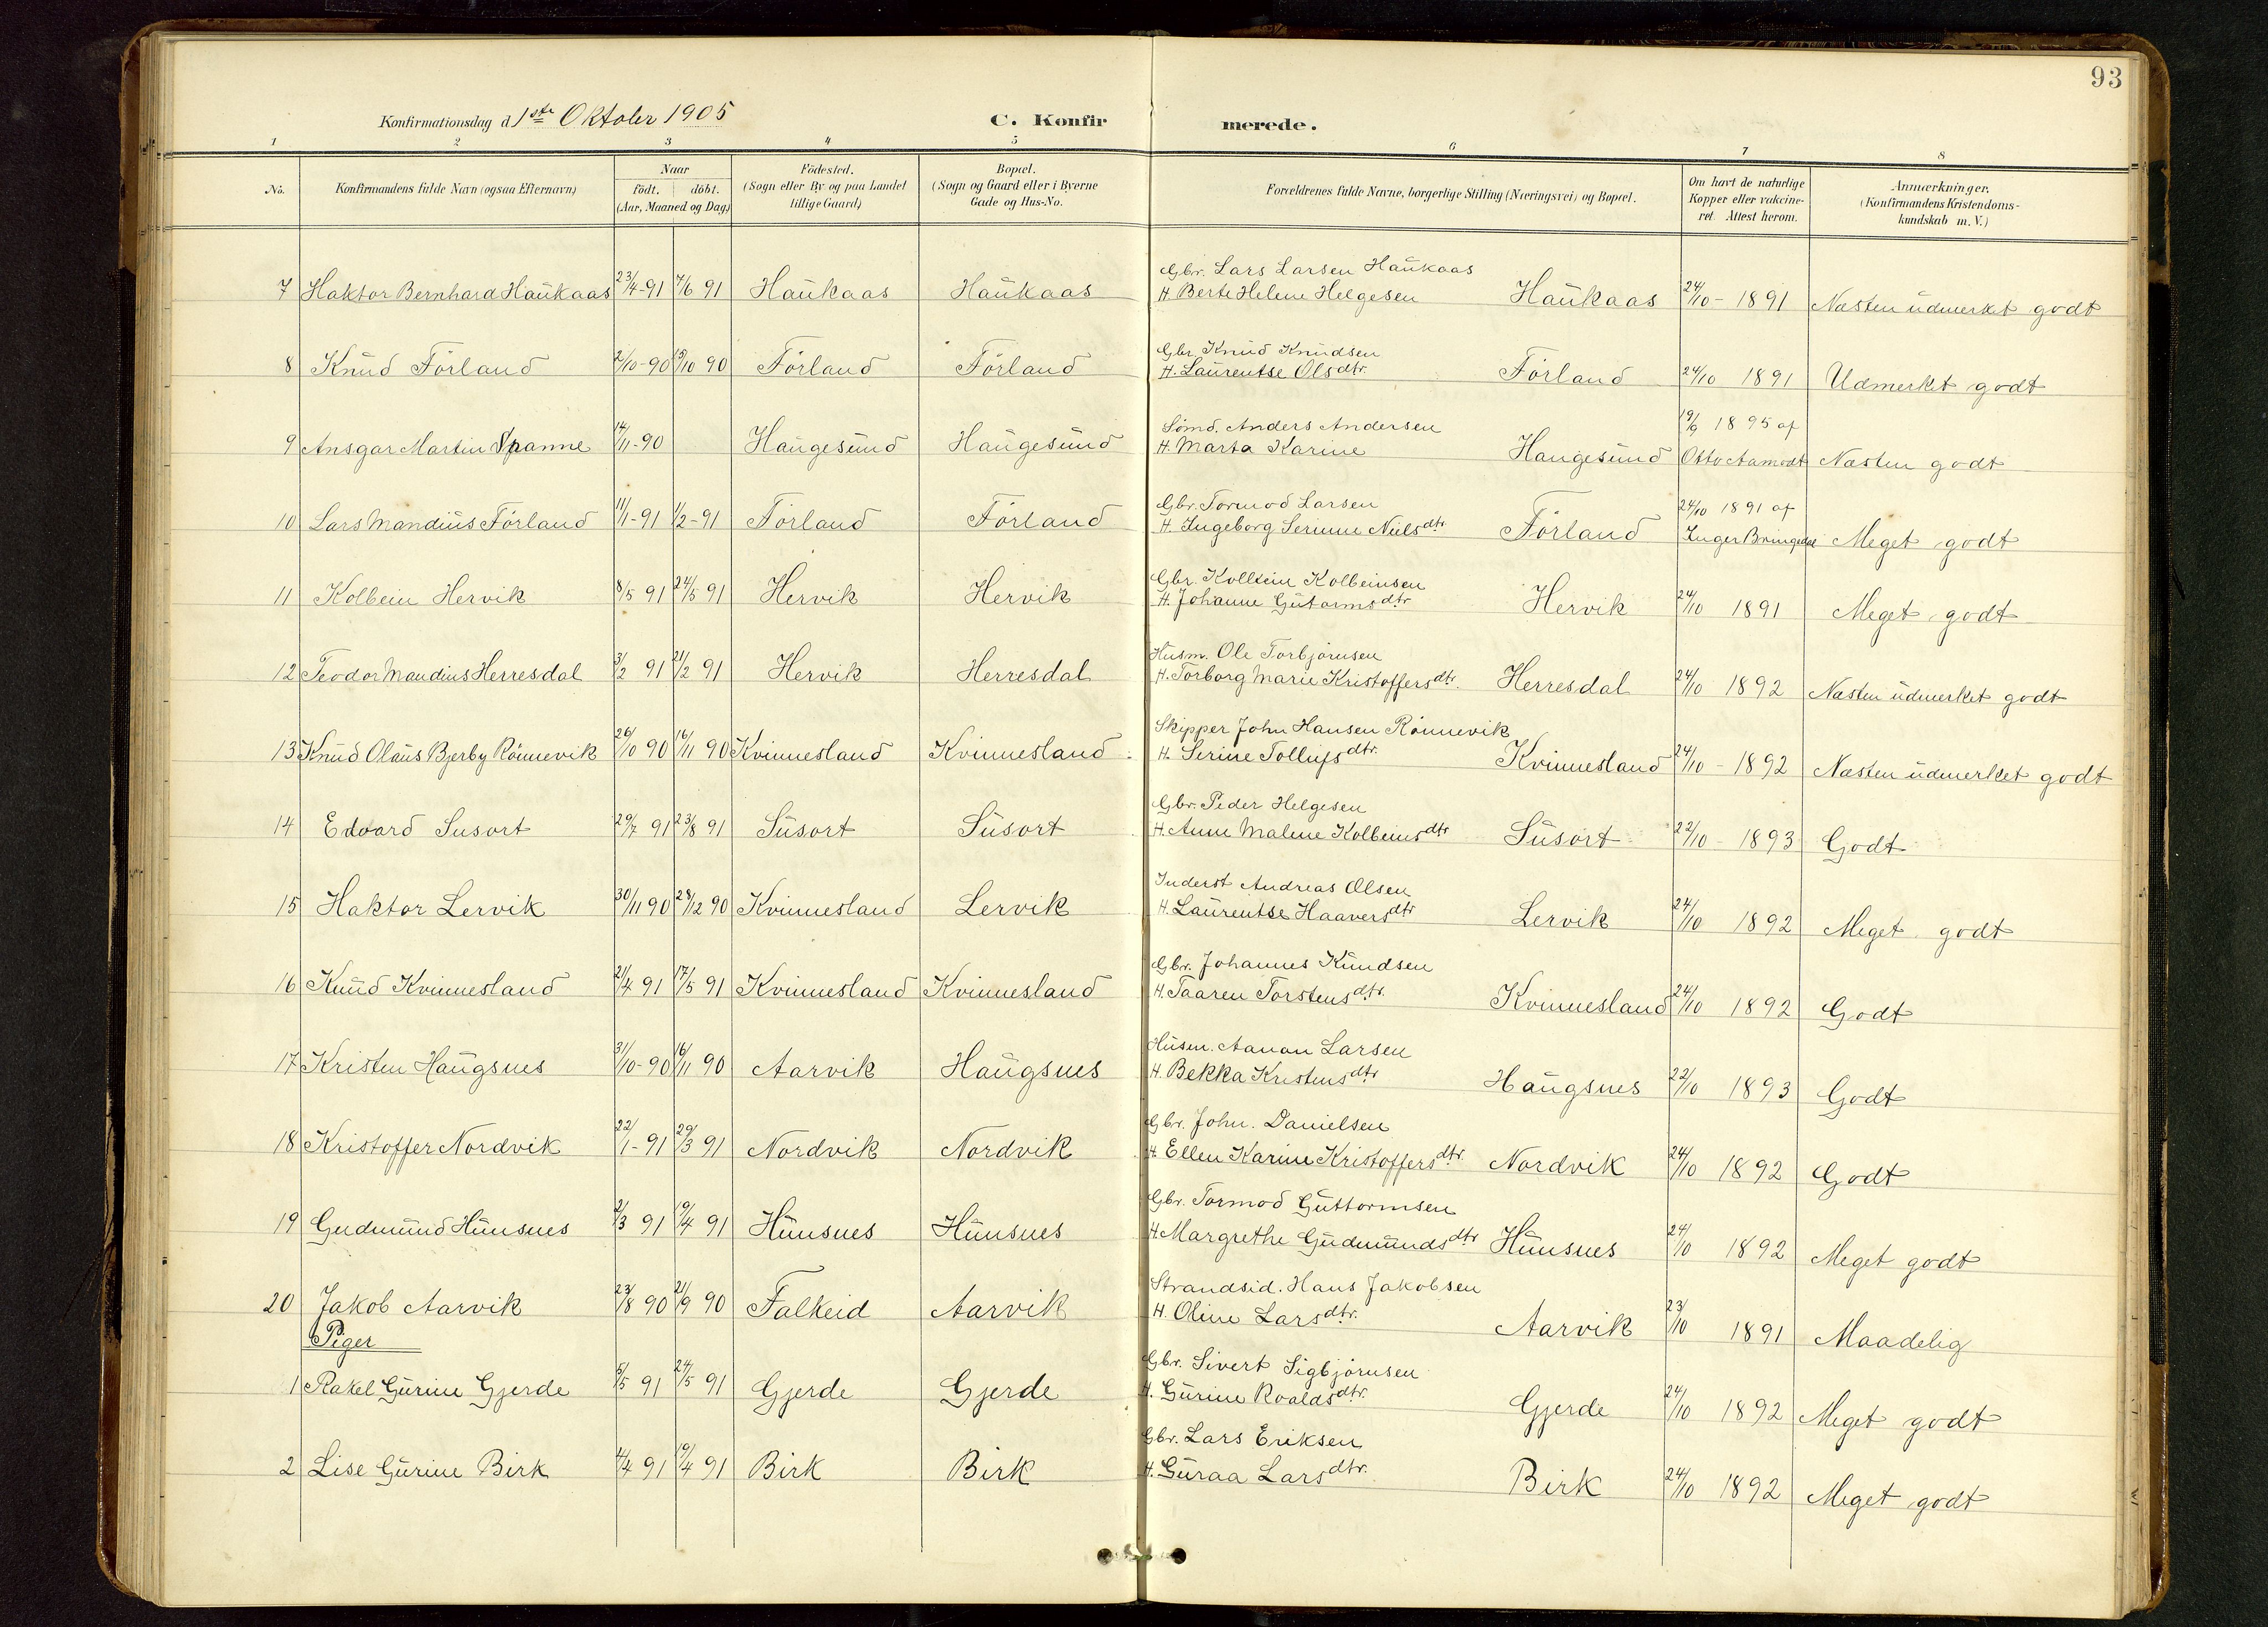 93
Konfirmationsdag d. 1ste Oktober 1905 C. Konfirmerede.
1 2 3 4 5 6 7 8
No. Konfirmandens fulde Navn (ogsaa Efternavn) Naar födt. döbt. (Aar, Maaned og Dag) Födested. (Sogn eller By og paa Landet tillige Gaard) Bopæl. (Sogn og Gaard eller i Byerne Gade og Hus-No. Forældrenes fulde Navne, borgerlige Stilling (Næringsvei) og Bopæl. Om havt de naturlige Kopper eller vakcineret. Attest herom. Anmærkninger. (Konfirmandens Kristendomskundskab m. V.)
7 Haktor Bernhard Haukaas 23/4-91 7/6 91 Haukaas Haukaas Gbr. Lars Larsen Haukaas
H. Berte Helene Helgesen Haukaas 24/10 - 1891 Næsten udmerket godt
8 Knud Förland 2/10-90 19/10 90 Förland Förland Gbr Knud Knudsen
H. Laurentse Olsdtr. Förland 24/10 1891 Udmerket godt
9 Ansgar Martin Spanne 14/11-90 Haugesund Haugesund Sömd. Anders Andersen
H. Marta Karine Haugesund 19/9 1895 af Otto Aamodt Næsten godt
10 Lars Mandius Förland 11/1-91 1/2-91 Förland Förland Gbr. Tormod Larsen
H. Ingeborg Serinne Nielsdtr Förland 24/10 1891 af Inger Bringedal Meget godt
11 Kolbein Hervik 8/5 91 24/5 91 Hervik Hervik Gbr. Kolbein Kolbeinsen
H. Johanne Gutormsdtr Hervik 24/10 1891 Meget godt
12 Teodor Mandius Herresdal 3/2 91 21/2 91 Hervik Herresdal Husm. Ole Torbjörnsen
H. Torborg Marie Kristoffersdtr. Herresdal 24/10 1892 Næsten udmerket godt
13 Knud Olaus Bjerby Rönnevik 26/10 90 16/11 90 Kvinnesland Kvinnesland Skipper John Hansen Rönnevik
H. Serine Tollufsdtr. Kvinnesland 24/10 - 1892 Næsten udmerket godt
14 Edvard Susort 29/7 91 23/8 91 Susort Susort Gbr. Peder Helgesen
H. Anne Malene Kolbeinsdtr Susort 22/10 - 1893 Godt
15 Haktor Lervik 30/11 90 28/12 90 Kvinnesland Lervik Inderst Andreas Olsen
H. Laurentse Haaversdtr Lervik 24/10 1892 Meget godt
16 Knud Kvinnesland 21/4 91 17/5 91 Kvinnesland Kvinnesland Gbr. Johannes Knudsen
H. Taaren Torstensdtr. Kvinnesland 24/10 1892 Godt
17 Kristen Haugsnes 31/10-90 16/11 90 Aarvik Haugsnes Husm. Aanon Larsen
H. Bekka Kristensdtr Haugsnes 22/10 1893 Godt
18 Kristoffer Nordvik 22/1-91 29/3 91 Nordvik Nordvik Gbr. John. Danielsen
H. Ellen Karine Kristoffersdtr. Nordvik 24/10 1892 Godt
19 Gudmund Hunsnes 2/3 91 19/4 91 Hunsnes Hunsnes Gbr. Tormod Guttormsen
H. Margrethe Gudmundsdtr Hunsnes 24/10 1892 Meget godt
20 Jakob Aarvik 23/8 90 21/9 90 Falkeid Aarvik Strandsid. Hans Jakobsen
H. Oline Larsdtr. Aarvik 23/10 1891 Maadelig
Piger
1 Rakel Gurine Gjerde 5/5 91 24/5 91 Gjerde Gjerde Gbr. Sivert Sigbjörnsen
H. Gurine Roaldsdtr. Gjerde 24/10 1892 Meget godt
2 Lise Gurine Birk 14/4 91 19/4 91 Birk Birk Gbr. Lars Eriksen
H. Guraa Larsdtr. Birk 24/10 1892 Meget godt